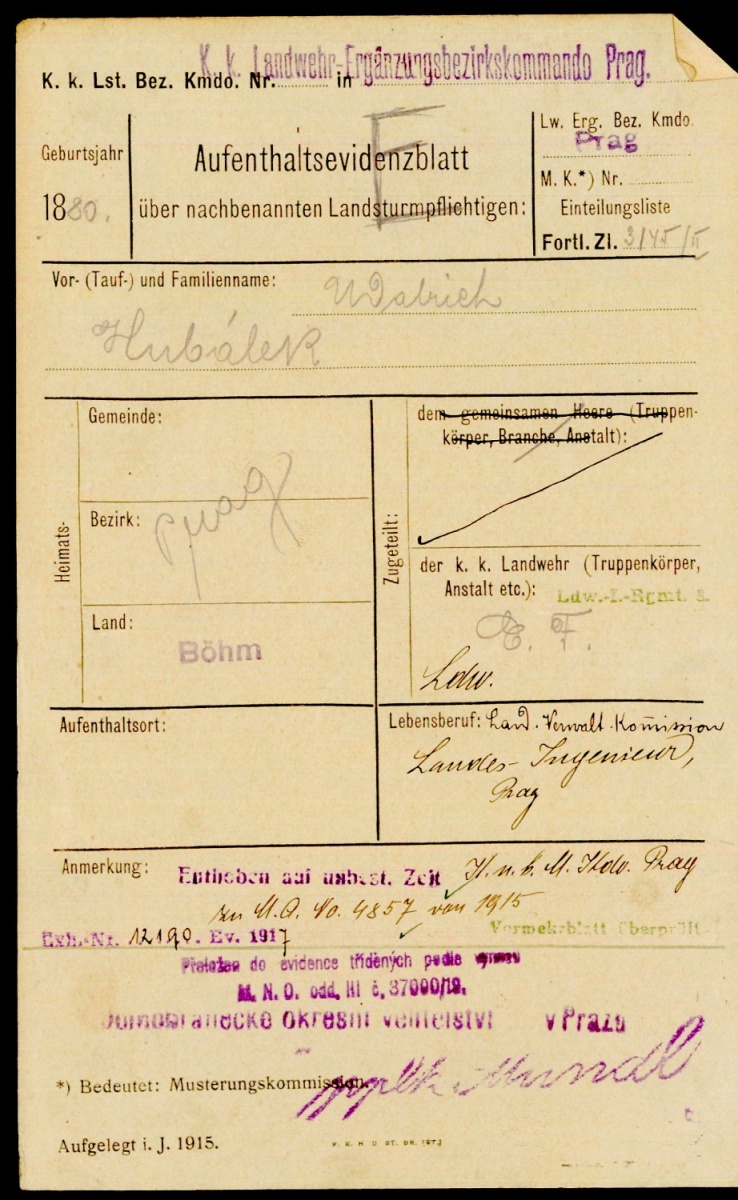 K. k. Landwehr-Ergänzungsbezirkskommando Prag.
K. k. Lst. Bez. Kmdo. Nr. in
Geburtsjahr
1880.
E
Aufenthaltsevidenzblatt
über nachbenannten Landsturmpflichtigen:
Lw. Erg. Bez. Kmdo.
Prag
M. K.*) Nr.
Einteilungsliste
Fortl. Zl. 3/45/II
Vor- (Tauf-) und Familienname: Udalrich
Hubálek
Heimats-
Gemeinde:
Bezirk:
Prag
Land:
Böhm
Zugeteilt:
dem gemeinsamen Heere (Truppen-
körper, Branche, Anstalt):
der k. k. Landwehr (Truppenkörper,
Anstalt etc.): Ldw.-I.-Rgmt. 8.
E. F.
Ldw.
Aufenthaltsort:
Lebensberuf: Land. Verwalt. Kommission
Landes-Ingenieur,
Prag
Anmerkung: Enthoben auf unbest. Zeit K. u. k. M. Kdo. Prag
zu M.A. No. 4857 von 1915
Exh.-Nr. 12190. Ev. 1917
Vormerkblatt überprüft
Přeložen do evidence tříděných podle
M. N. O. odd. III č. 37000/19.
Domobranecké okresní velitelství v Praze
*) Bedeutet: Musterungskommission.
Mundl
Aufgelegt i. J. 1915.